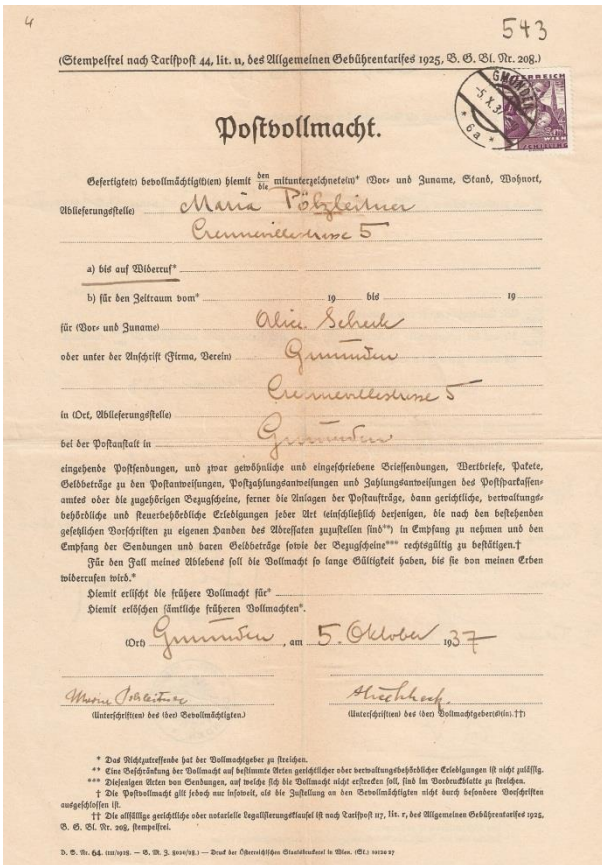 4
543
(Stempelfrei nach Tarifpost 44, lit. u, des Allgemeinen Gebührentarifes 1925, B. G. Bl. Nr. 208.)
GMUNDEN
-5.X.37
* 6a *
ÖSTERREICH
WIEN
SCHILLING
Postvollmacht.
Gefertigte(r) bevollmächtig(t)(en) hiemit den/die mitunterzeichnete(n)* (Vor- und Zuname, Stand, Wohnort,
Ablieferungsstelle) Maria Pölzleitner
Crennevillestrasse 5
a) bis auf Widerruf*
b) für den Zeitraum vom* 19 bis 19
für (Vor- und Zuname) Alice Scheck
oder unter der Anschrift (Firma, Verein) Gmunden
Crennevillestrasse 5
in (Ort, Ablieferungsstelle)
bei der Postanstalt in Gmunden
eingehende Postsendungen, und zwar gewöhnliche und eingeschriebene Briefsendungen, Wertbriefe, Pakete,
Geldbeträge zu den Postanweisungen, Postzahlungsanweisungen und Zahlungsanweisungen des Postsparkassen-
amtes oder die zugehörigen Bezugscheine, ferner die Anlagen der Postaufträge, dann gerichtliche, verwaltungs-
behördliche und steuerbehördliche Erledigungen jeder Art (einschließlich derjenigen, die nach den bestehenden
gesetzlichen Vorschriften zu eigenen Handen des Adressaten zuzustellen sind**) in Empfang zu nehmen und den
Empfang der Sendungen und baren Geldbeträge sowie der Bezugscheine*** rechtsgültig zu bestätigen.†
Für den Fall meines Ablebens soll die Vollmacht so lange Gültigkeit haben, bis sie von meinen Erben
widerrufen wird.*
Hiemit erlischt die frühere Vollmacht für*
Hiemit erlöschen sämtliche früheren Vollmachten*.
(Ort) Gmunden, am 5. Oktober 1937
Maria Pölzleitner
(Unterschrift(en) des (der) Bevollmächtigten.) (Unterschrift(en) des (der) Vollmachtgeber(s)(in).††)
* Das Nichtzutreffende hat der Vollmachtgeber zu streichen.
** Eine Beschränkung der Vollmacht auf bestimmte Arten gerichtlicher oder verwaltungsbehördlicher Erledigungen ist nicht zulässig.
*** Diejenigen Arten von Sendungen, auf welche sich die Vollmacht nicht erstrecken soll, sind im Vordruckblatte zu streichen.
† Die Postvollmacht gilt jedoch nur insoweit, als die Zustellung an den Bevollmächtigten nicht durch besondere Vorschriften
ausgeschlossen ist.
†† Die allfällige gerichtliche oder notarielle Legalisierungsklausel ist nach Tarifpost 117, lit. r, des Allgemeinen Gebührentarifes 1925,
B. G. Bl. Nr. 208, stempelfrei.
D. S. Nr. 64. (III/1928. — G. M. Z. — Druck der Österreichischen Staatsdruckerei in Wien. (St.)